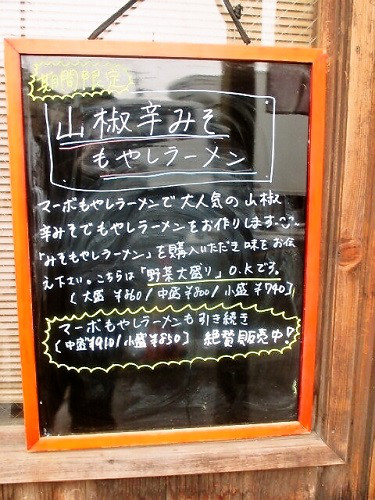 期間限定
山椒辛みそ
もやしラーメン
マーボもやしラーメンで大人気の山椒
辛みそでもやしラーメンをお作りします
「みそもやしラーメン」を購入いただき味をお伝
え下さい。こちらは「野菜大盛り」O.Kです。
(大盛 ¥860/中盛¥800/小盛¥740]
マーボもやしラーメンも引き続き
(中盛¥910/小盛¥850] 絶賛販売中!